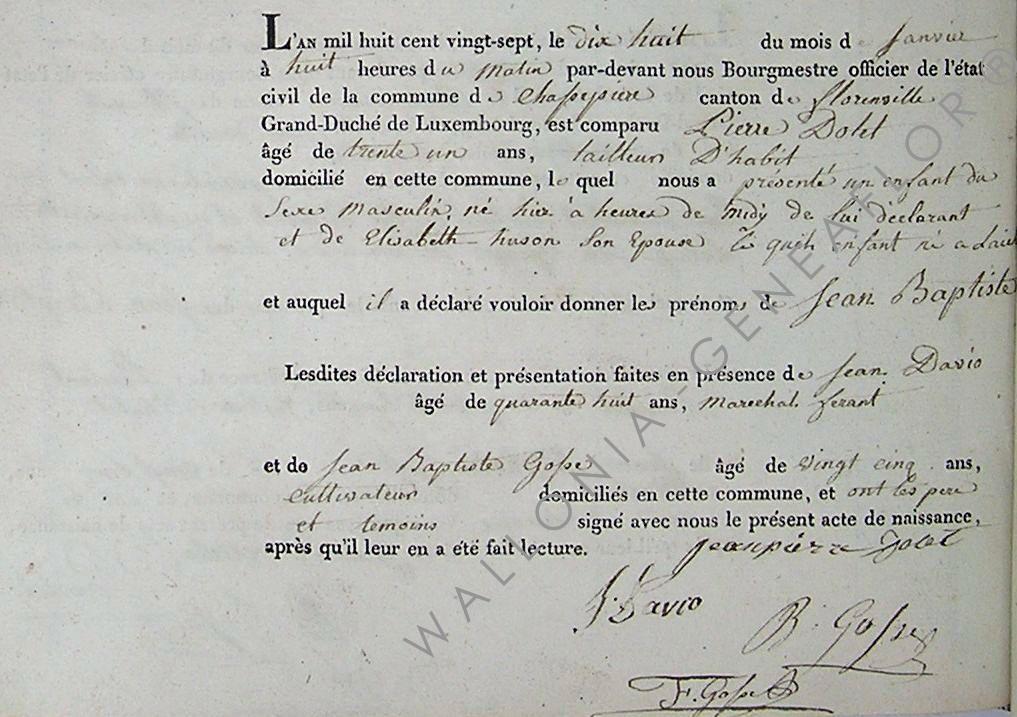 L'AN mil huit cent vingt-sept, le dix huit du mois de Janvier
à huit heures du matin par-devant nous Bourgmestre officier de l'état
civil de la commune de Chassepierre canton de florenville
Grand-Duché de Luxembourg, est comparu Pierre Dolet
âgé de trente un ans, tailleur D'habit
domicilié en cette commune, le quel nous a présenté un enfant du
Sexe Masculin, né hier à heures de midy de lui déclarant
et de Elisabeth huson Son Epouse enfant né a
et auquel il a déclaré vouloir donner les prénoms de Jean Baptiste
Lesdites déclaration et présentation faites en présence de Jean Davio
âgé de quarante huit ans, marechal ferant
et de Jean Baptiste Gosse âgé de vingt cinq ans,
cultivateur domiciliés en cette commune, et ont les pere
et temoins signé avec nous le présent acte de naissance,
après qu'il leur en a été fait lecture. jean pierre Dolet
J. Davio
B. Gosse
F. Gosse
WALLONIA GENEALOR ®